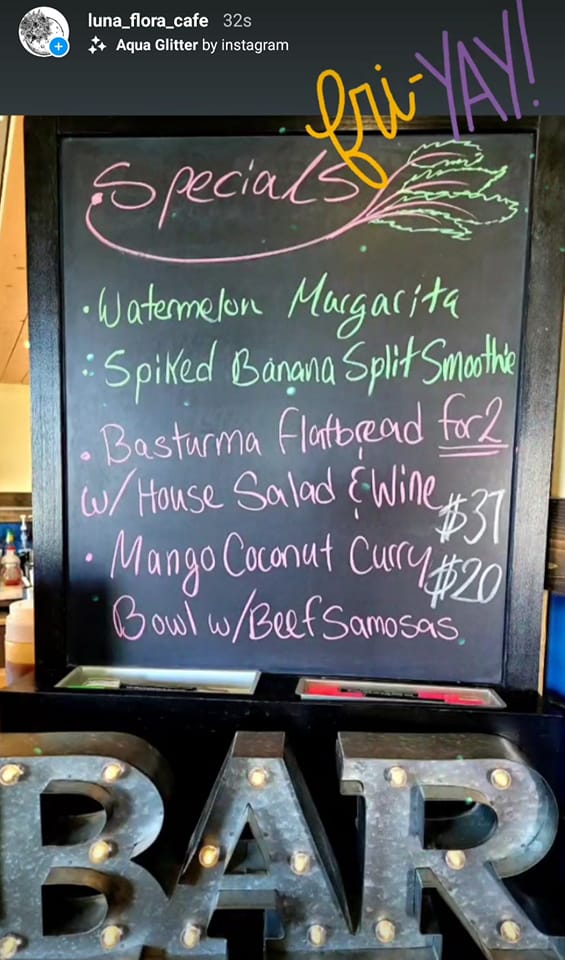 luna_flora_cafe 32s
Aqua Glitter by instagram
fri-YAY!
Specials
• Watermelon Margarita
• Spiked Banana Split Smoothie
• Basturma Flatbread for 2
w/ House Salad & Wine $37
• Mango Coconut Curry $20
Bowl w/ Beef Samosas
BAR